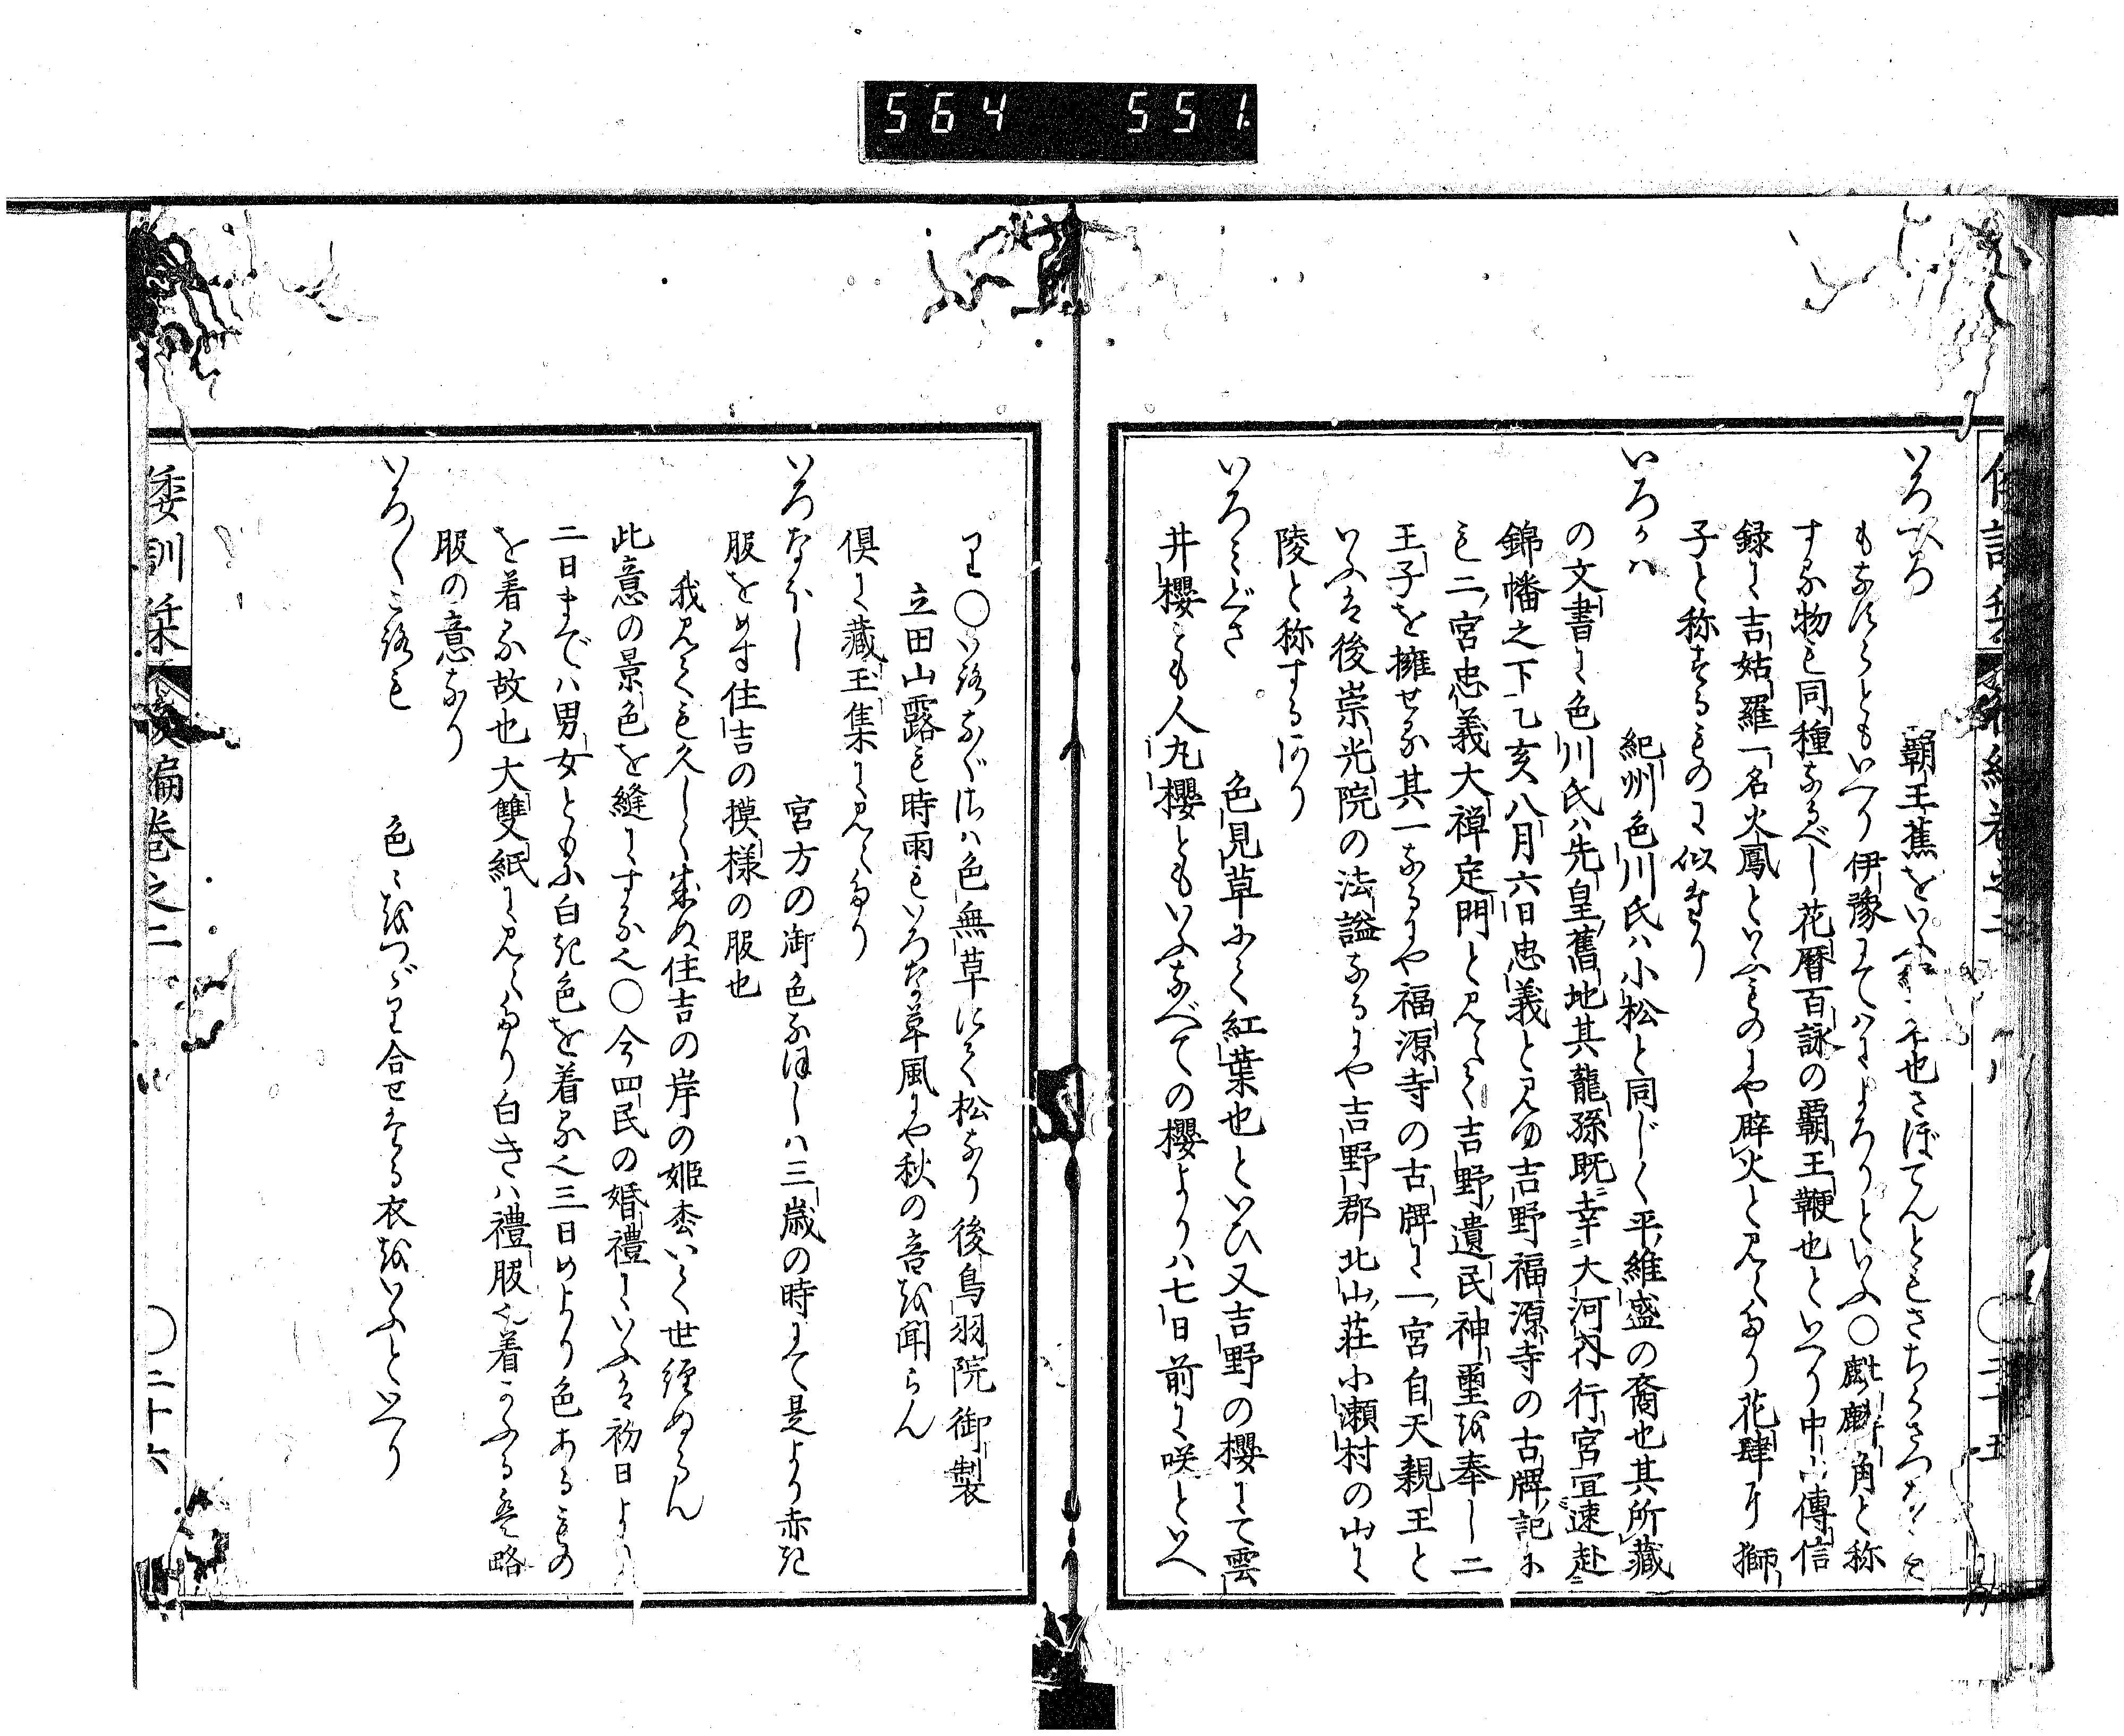 564 551
いろへろ 覇王蕉をいふ 也さぼてんともさちらさつ
もなれらともいへり伊豫にてはによろりといふ〇麒麟角と称
する物も同種なるべし花暦百詠の覇王鞭也といへり中山傳信
録に吉姑羅一名火鳳といふものにや辟火と見えたり花肆に獅
子と称するものに似たり
いろかは 紀州色川氏は小松と同じく平維盛の裔也其所藏
の文書に色川氏ハ先皇舊地其龍孫既幸大河内行宮宜速赴
錦幡之下乙亥八月六日忠義と見ゆ吉野福源寺の古牌記に
も二宮忠義大禅定門と見えて吉野遺民神璽を奉し二
王子を擁せる其一なるにや福源寺の古牌に一宮自天親王と
いふは後崇光院の法謚なるにや吉野郡北山荘小瀬村の山を
陵と称するなり
いろみぐさ 色見草にて紅葉也といひ又吉野の櫻にて雲
井櫻とも人丸櫻ともいふなべての櫻よりは七日前に咲といへ
り〇いろなぐさは色無草にて松なり後鳥羽院御製
立田山露も時雨もいろな草風にや秋の音を聞らん
倶に藏玉集に見えたり
いろなほし 宮方の御色なほしは三歳の時にて是より赤き
服をめす住吉の摸様の服也
我見ても久しく成ぬ住吉の岸の姫松いく世經ぬらん
此意の景色を縫にする也〇今四民の婚禮にいふは初日より
二日までは男女ともに白き色を着る也三日めより色あるもの
を着る故也大雙紙に見えたり白きは禮服也着かふるは略
服の意なり
いろ〳〵ころも 色〻をつゞり合せたる衣をいふといへり
倭訓栞 後編巻之二 〇二十六